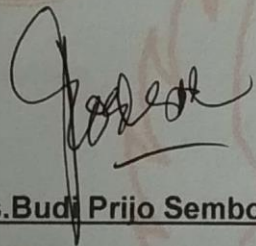 s.Budi Prijo Sembo